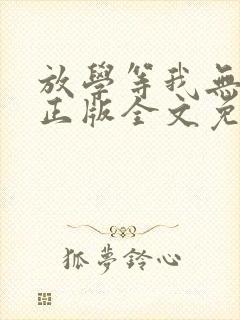 放學等我無
正版全文免
狐夢鈴心